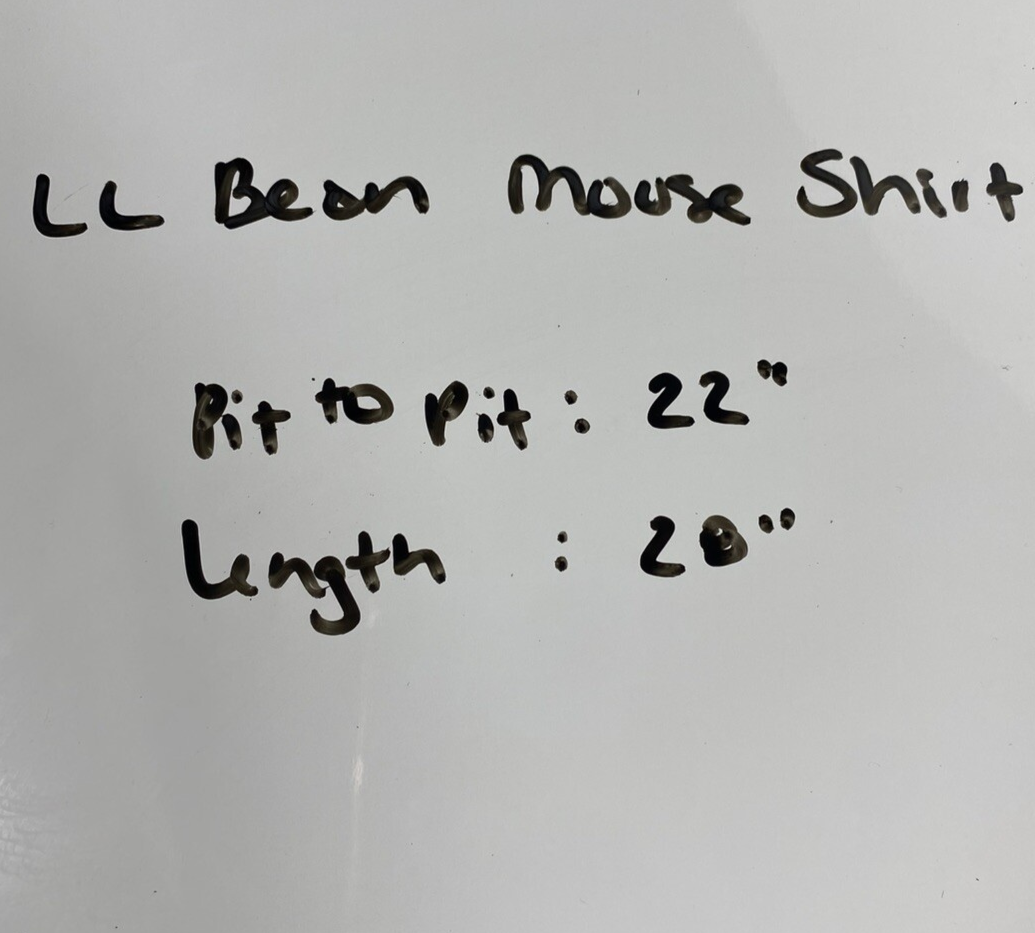 LL Bean Mouse Shirt
Pit to Pit : 22"
Length : 20"